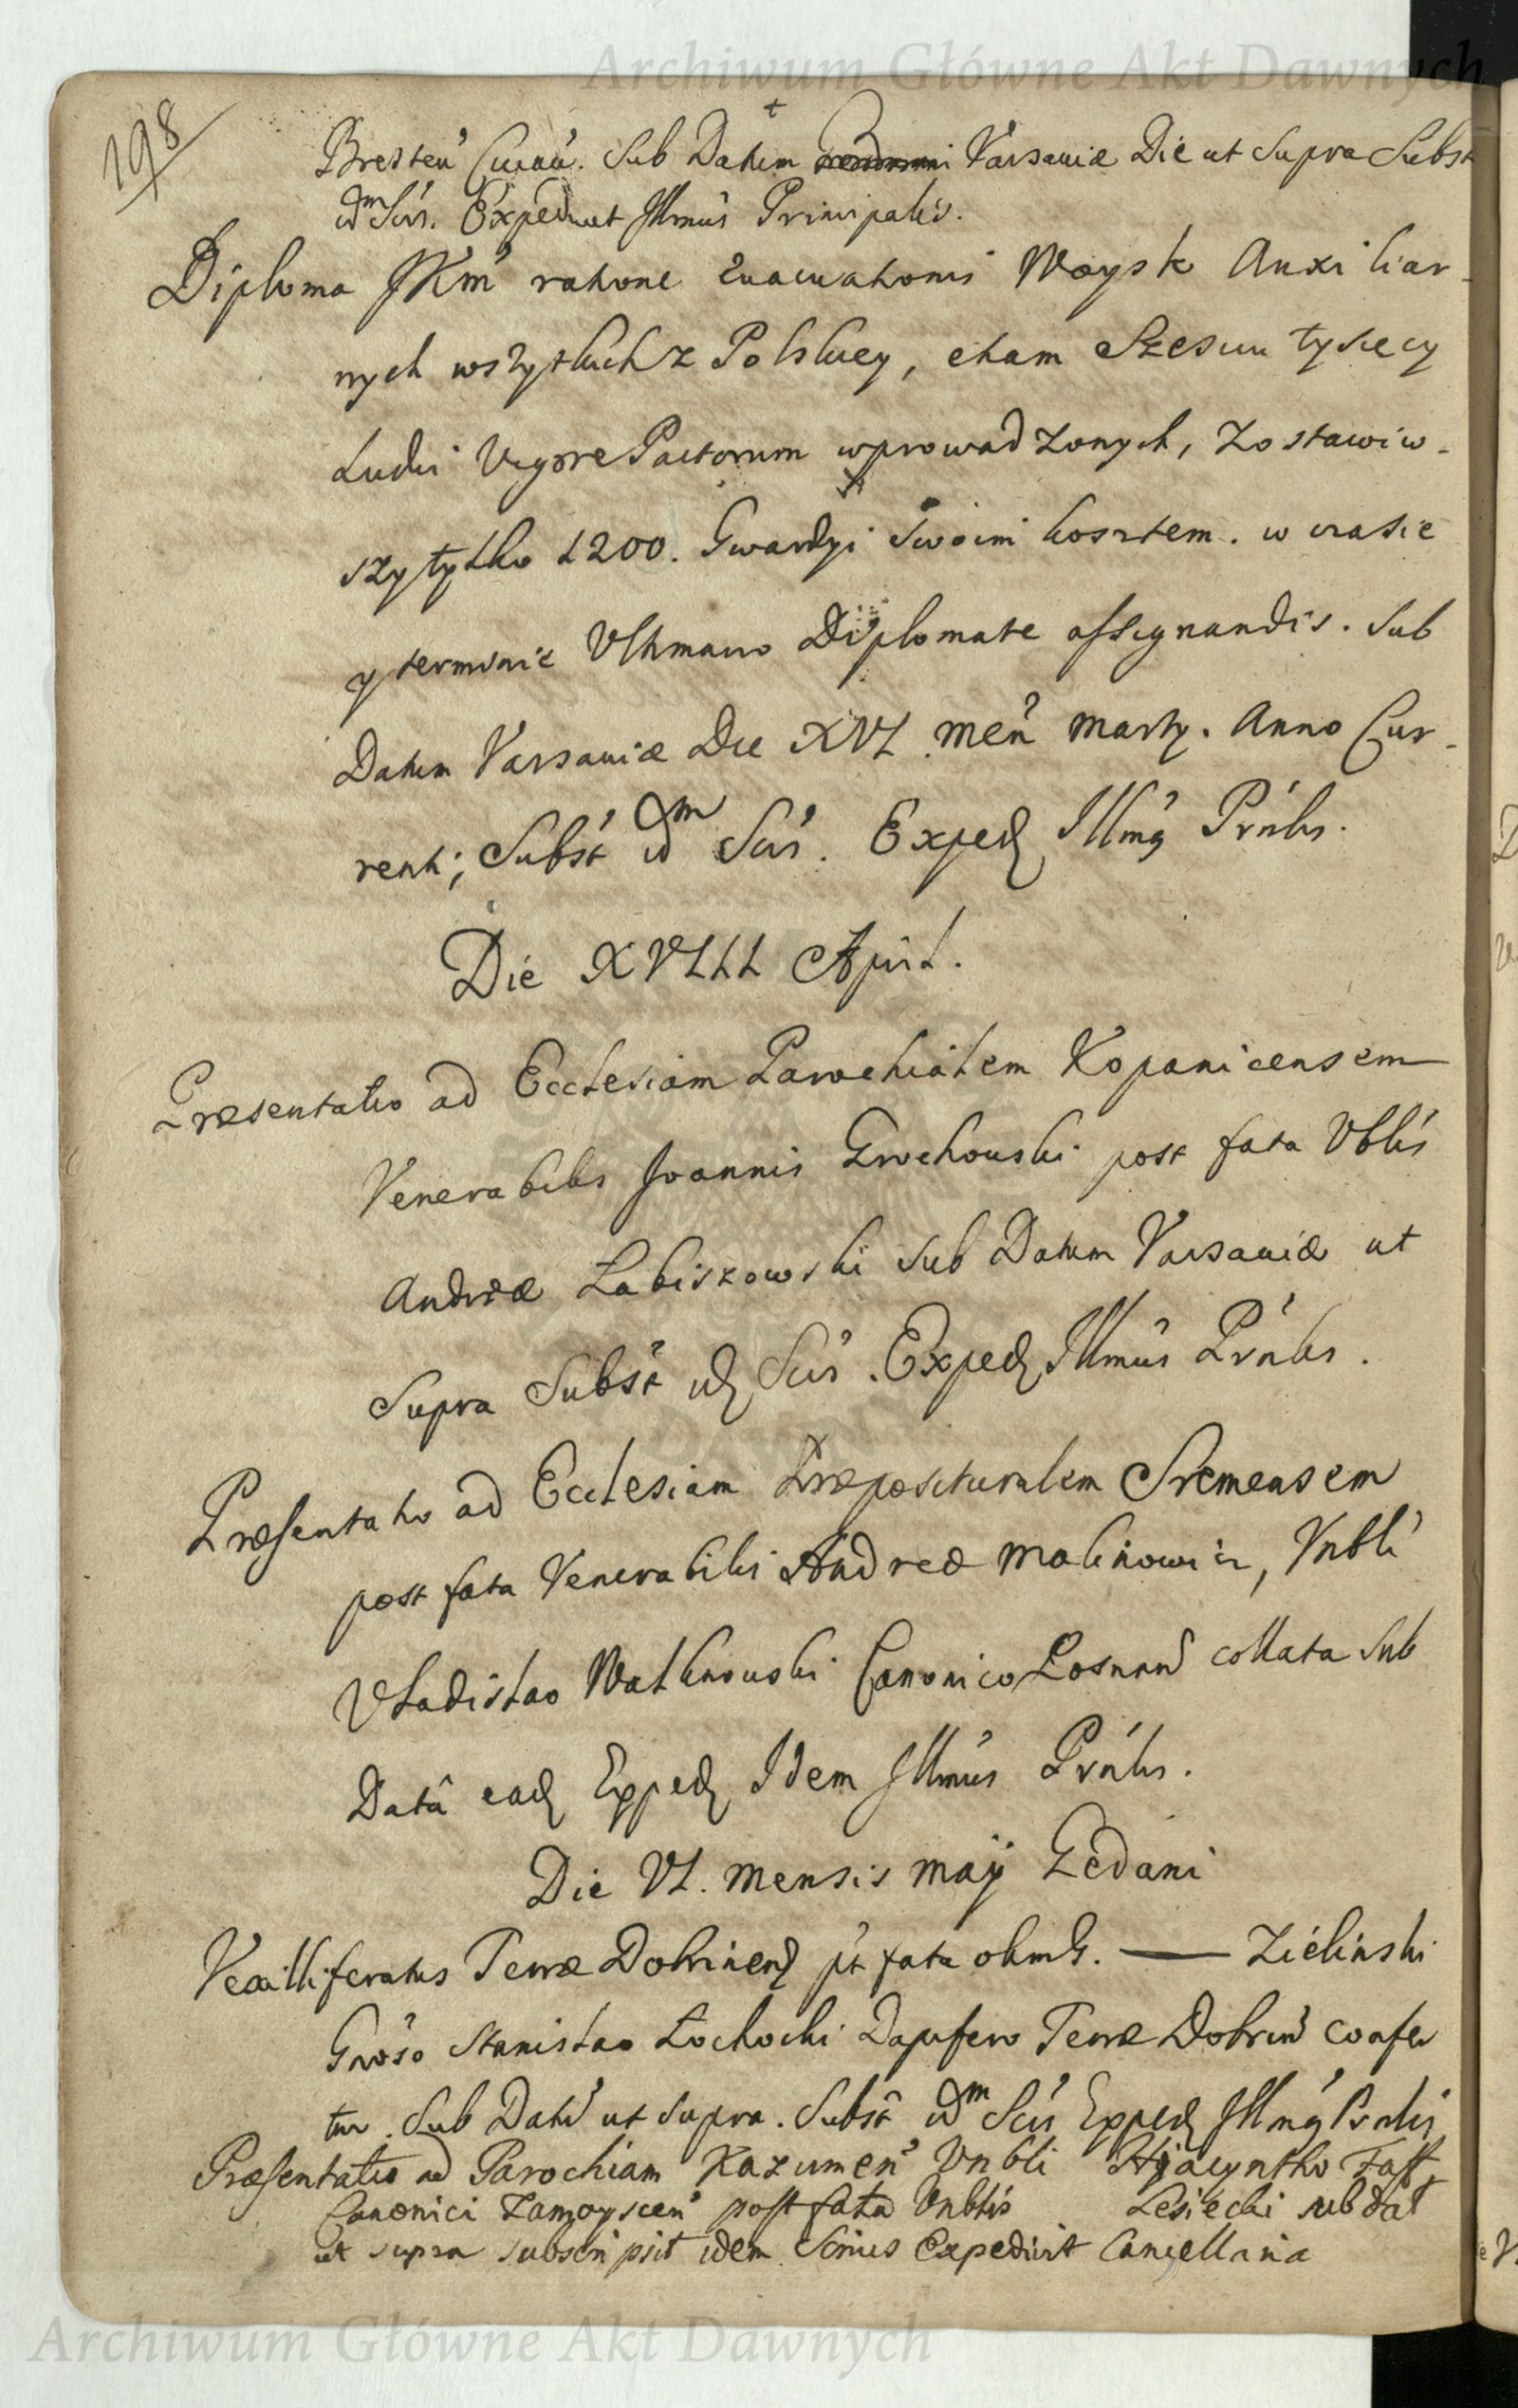 Archiwum Główne Akt Dawnych
198
Bresten Cujav. Sub Datum Varsaviæ Die ut Supra Subst
idm Scrs. Expedivit Illmus Principalis.
Diploma JKM ratione Evacuationis Woysk Auxiliar-
nych wszytkich z Polskiey, etiam Szesciu tysięcy
Ludzi Vigore Pactorum wprowadzonych, Zostawiw-
szy tylko 1200. Gwardyi Swoim kosztem. w czasie
y terminie Ultimario Diplomate assignandis. Sub
Datum Varsaviæ Die XVI. Men Marty. Anno Cur-
renti; Subst idm Scrs. Exped Illmg Prnlis.
Die XVIII April.
Præsentatio ad Ecclesiam Parochialem Kopanicensem
Venerabilis Joannis Grochouski post fata Vblis
Andreæ Łabiszowski Sub Datum Varsaviæ ut
Supra Subst id Scrs. Exped Illmus Prnlis.
Præsentatio ad Ecclesiam Præposituralem Sremensem
post fata Venerabilis Andreæ Malinowicz, Vnbli
Vladislao Walknouski Canonico Posnan collata Sub
Datâ ead Exped Idem Illmus Prnlis.
Die VI. Mensis Maÿ Gedani
Vexilliferatus Terræ Dobrinen pt fata olim G. — Zielinski
Gnoso Stanislao Łochocki Dapifero Terræ Dobrin confer
tur. Sub Dato ut supra. Subst idm Scrs Exped Illmg Prnlis
Præsentatio ad Parochiam Kazumen Vnbli Hyacyntho Fast
Canonici Zamoyscen post fata Vnblis Lesiecki sub dat
ut supra subscripsit idem Scrius Expedivit Cancellaria
Archiwum Główne Akt Dawnych